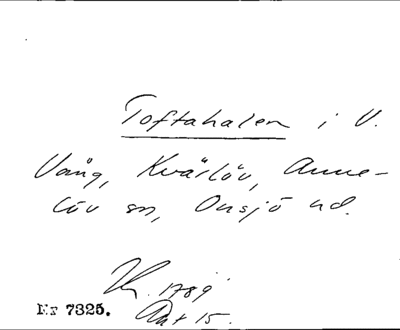 Toftahalen i V.
Vång, Kvärlöv, Anne-
löv sn, Onsjö hd.
1789
Nr 7325. Akt 15.